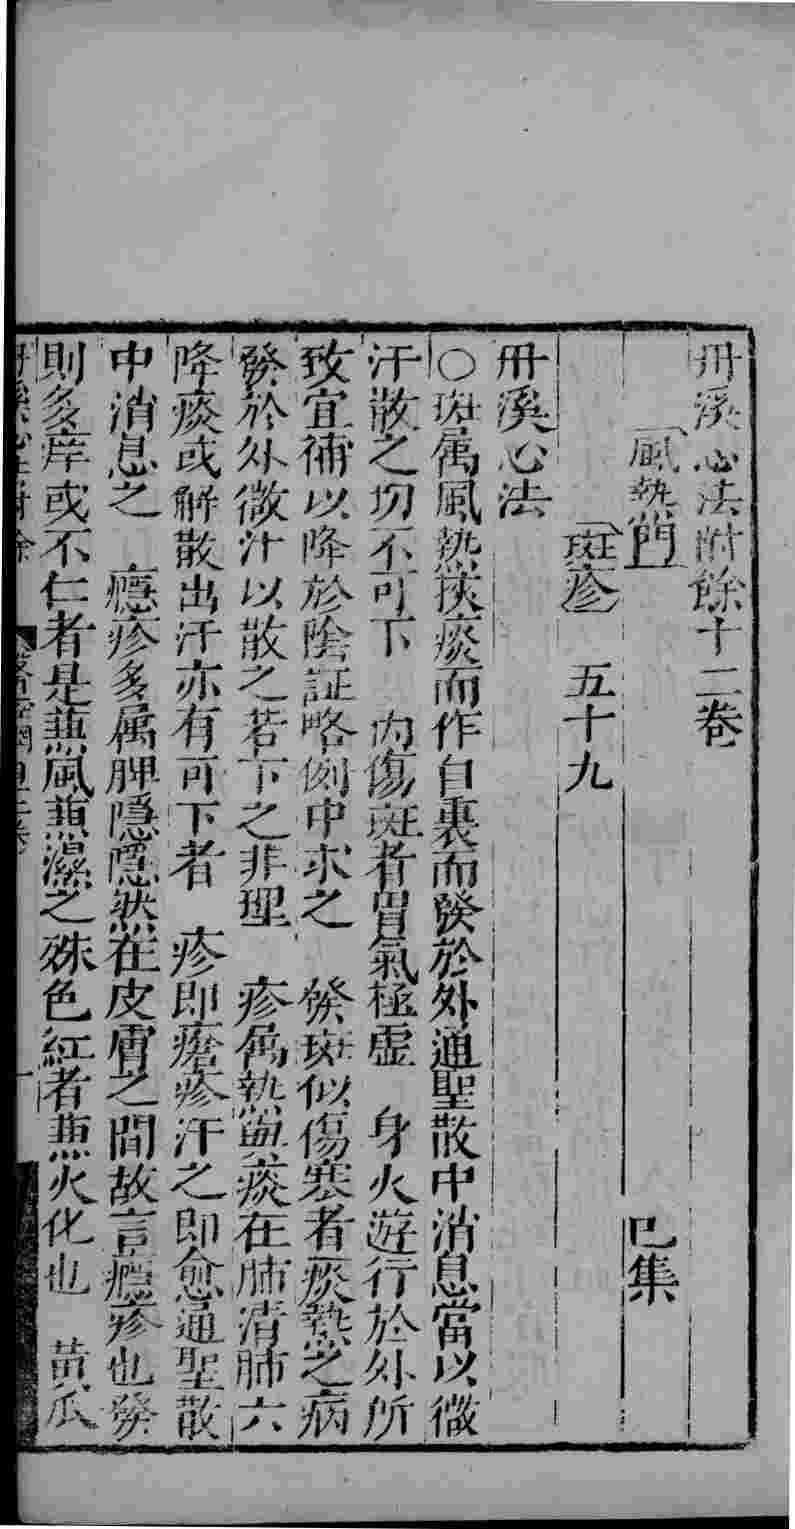 丹溪心法附餘十二卷
風熱門 巳集
斑疹 五十九
丹溪心法
○斑属風熱挾痰而作自裏而發於外通聖散中消息當以微
汗散之切不可下 内傷斑者胃氣極虚 身火遊行於外所
致宜補以降於陰証略例中求之 發斑似傷寒者痰熱之病
發於外微汁以散之若下之非理 疹属熱與痰在肺清肺六
降痰或解散出汗亦有可下者 疹即瘡疹汗之即愈通聖散
中消息之 癮疹多属脾隱隱然在皮膚之間故言癮疹也發
則多痒或不仁者是兼風兼濕之殊色紅者兼火化也 黄瓜
丹溪心法附餘